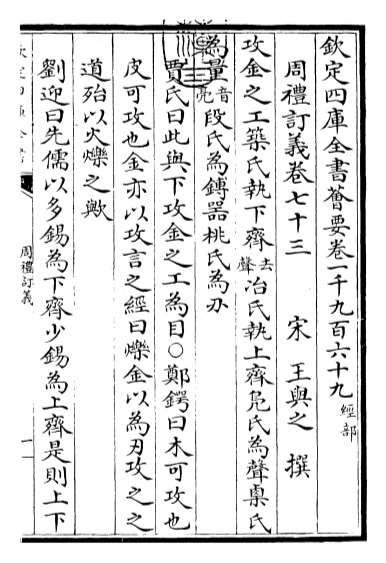 欽定四庫全書薈要卷一千九百六十九 經部
周禮訂義卷七十三 宋 王與之 撰
攻金之工築氏執下齊去聲冶氏執上齊鳧氏為聲㮚氏
為量音亮段氏為鎛器桃氏為刅
賈氏曰此與下攻金之工為目○鄭鍔曰木可攻也
皮可攻也金亦以攻言之經曰爍金以為刃攻之之
道殆以火爍之歟
劉迎曰先儒以多錫為下齊少錫為上齊是則上下
周禮訂義
一